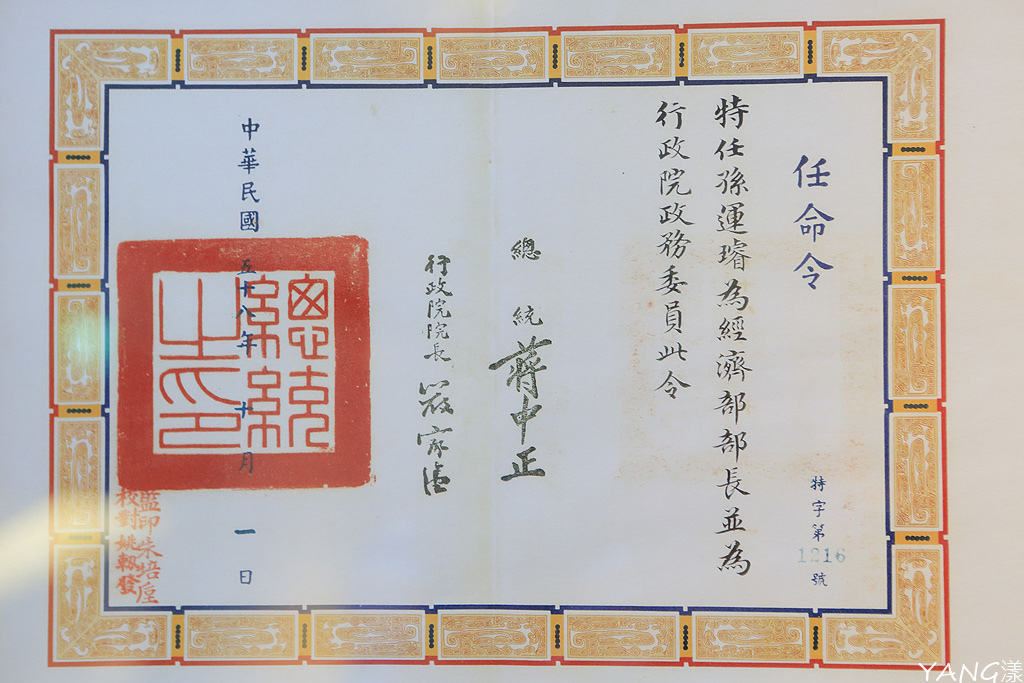 任命令
特任孫運璿為經濟部部長並為
行政院政務委員此令
特字第1216號
總統 蔣中正
行政院院長 嚴家淦
中華民國五十八年十月一日
總統之印
監印朱培垕
校對姚軔發
YANG漾